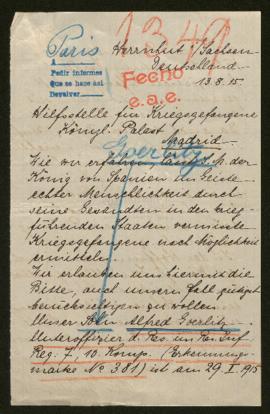 1349
Paris
A
Pedir informes
Que se hace así
Devolver
Herrnhut i/Sachsen
Deutschland
13.8.15
Fecho
e.a.e.
Hilfsstelle für Kriegsgefangene
Königl. Palast
Madrid
Goerlitz
Wie wir erfahren, S. M. der
König von Spanien im Geiste
echter Menschlichkeit durch
seine Gesandten in den krieg
führenden Staaten vermisste
Kriegsgefangene nach Möglichkeit
ermitteln.
Wir erlauben uns hiermit die
Bitte, auch unsern Fall gütigst
berücksichtigen zu wollen.
Unser Sohn Alfred Goerlitz
Unteroffizier d. Res. im Res. Inf.
Reg. 7, 10. Komp. (Erkennungs-
marke No 381) ist am 29. I. 1915